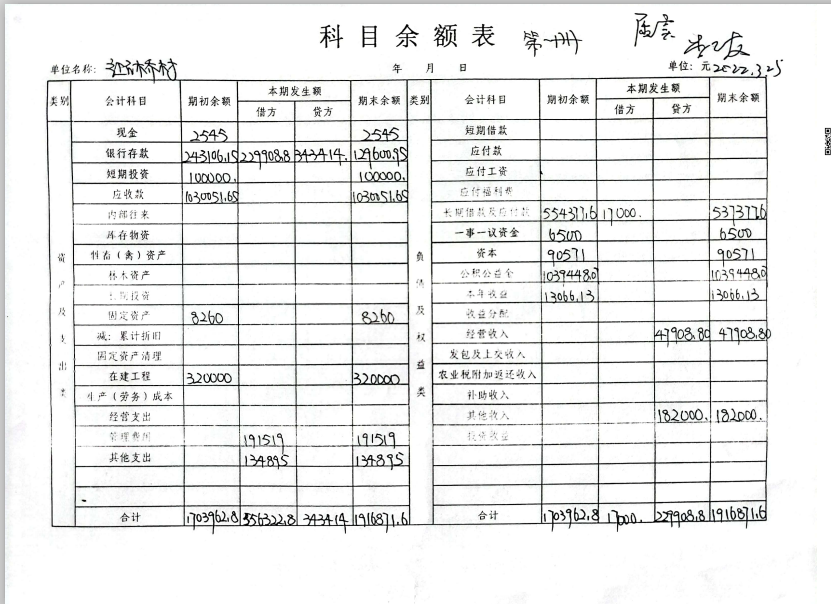 科目余额表 第一册
单位名称：
年 月 日 单位：元 2022.3.25
类别 会计科目 期初余额 本期发生额 期末余额 类别 会计科目 期初余额 本期发生额 期末余额
借方 贷方 借方 贷方
资产及支出类 负债及权益类
现金 2545 2545 短期借款
银行存款 243106.15 229908.8 343414. 129600.95 应付款
短期投资 100000. 100000. 应付工资
应收款 1030051.65 1030051.65 应付福利费
内部往来 长期借款及应付款 554377.6 17000. 537377.6
库存物资 一事一议资金 6500 6500
牲畜（禽）资产 资本 90571 90571
林木资产 公积公益金 1039448.0 1039448.0
长期投资 本年收益 13066.13 13066.13
固定资产 8260 8260 收益分配
减：累计折旧 经营收入 47908.80 47908.80
固定资产清理 发包及上交收入
在建工程 320000 320000 农业税附加返还收入
生产（劳务）成本 补助收入
经营支出 其他收入 182000. 182000.
管理费用 191519 191519 投资收益
其他支出 134895 134895
合计 1703962.8 556322.8 343414 1916871.6 合计 1703962.8 17000. 229908.8 1916871.6